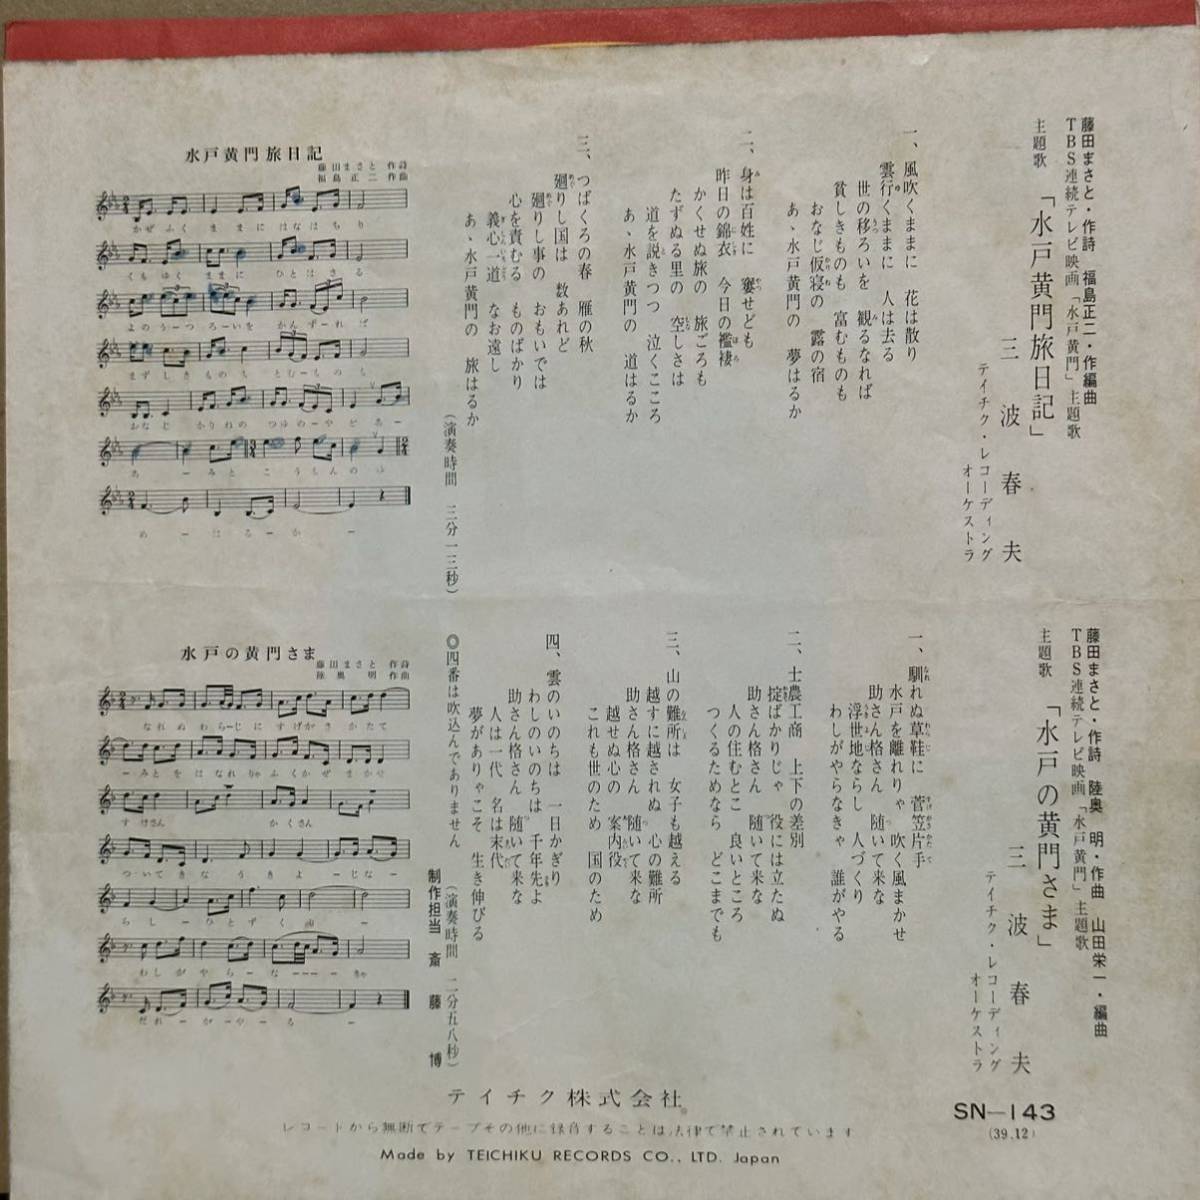 藤田まさと・作詩　福島正二・作編曲
TBS連続テレビ映画「水戸黄門」主題歌
主題歌「水戸黄門旅日記」
三波春夫
テイチク・レコーディング
オーケストラ
一、風吹くままに　花は散り
雲行くままに　人は去る
世の移ろいを　観るなれば
貧しきものも　富むものも
おなじ仮寝の　露の宿
あゝ水戸黄門の　夢はるか
二、身は百姓に　窶せども
昨日の錦衣　今日の襤褸
かくせぬ旅の　旅ごろも
たずぬる里の　空しさは
道を説きつつ　泣くこころ
あゝ水戸黄門の　道はるか
三、つばくろの春　雁の秋
廻りし国は　数あれど
廻りし事の　おもいでは
心を責むる　ものばかり
義心一道　なお遠し
あゝ水戸黄門の　旅はるか
（演奏時間　三分一三秒）
水戸黄門旅日記
藤田まさと　作詩
福島正二　作曲
かぜふく　ままに　はなは　ちり
くもゆく　ままに　ひとはさる
よのうーつ　ろーいを　かんずーれば
まずしきものも　とむーものも
おなじ　かりねの　つゆのーやどあー
あ　ーみと　こうもんの　ゆ
めーはるーかー
藤田まさと・作詩　陸奥　明・作曲　山田栄一・編曲
TBS連続テレビ映画「水戸黄門」主題歌
主題歌「水戸の黄門さま」
三波春夫
テイチク・レコーディング
オーケストラ
一、馴れぬ草鞋に　菅笠片手
水戸を離れりゃ　吹く風まかせ
助さん格さん　随いて来な
浮世地ならし　人づくり
わしがやらなきゃ　誰がやる
二、士農工商　上下の差別
掟ばかりじゃ　役には立たぬ
助さん格さん　随いて来な
人の住むとこ　良いところ
つくるためなら　どこまでも
三、山の難所は　女子も越える
越すに越されぬ　心の難所
助さん格さん　随いて来な
越せぬ心の　案内役
これも世のため　国のため
四、雲のいのちは　一日かぎり
わしのいのちは　千年先よ
助さん格さん　随いて来な
人は一代　名は末代
夢がありゃこそ　生き伸びる
◎四番は吹込んでありません　（演奏時間　二分五八秒）
制作担当　斎藤　博
水戸の黄門さま
藤田まさと　作詩
陸奥明　作曲
なれぬ　わらーじに　すげがさ　かたて
ーみとを　はなれ　りゃ　ふくかぜ　まかせ
すけさん　かくさん
ついてきな　うきよーじな
らしー　ひとずくー
わしがやらーなーーーーきゃ
だれーがーやーるー
テイチク株式会社
レコードから無断でテープその他に録音することは法律で禁止されています
Made by TEICHIKU RECORDS CO., LTD. Japan
SN—143
(39.12)